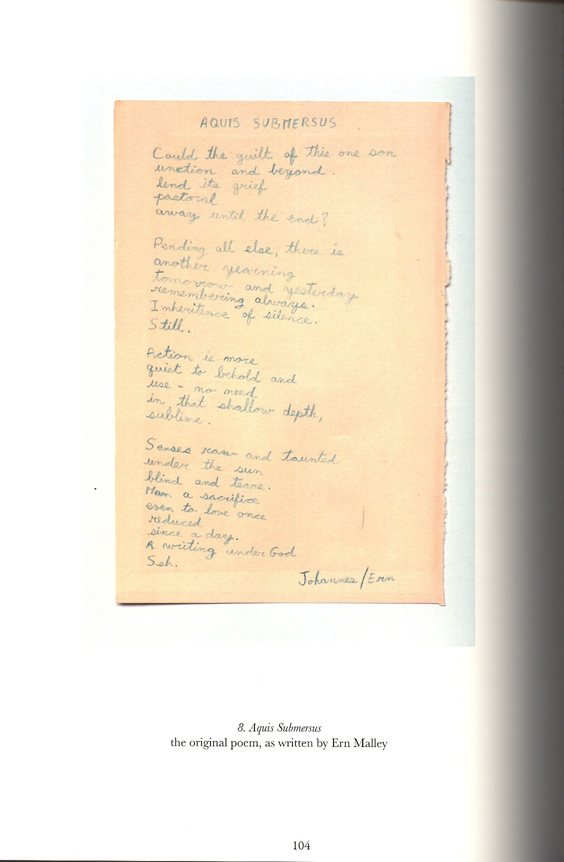 AQUIS SUBMERSUS
Could the guilt of this one son
unction and beyond.
lend its grief
pastoral
away until the end?
Pending all else, there is
another yearning
tomorrow and yesterday
remembering always.
Inheritence of silence.
Still.
Action is more
quiet to behold and
use - no need
in that shallow depth,
sublime.
Senses raw and taunted
under the sun
blind and tears.
Man a sacrifice
even to love once
reduced
since a day.
A writing under God
Ssh.
Johannes/Ern
8. Aquis Submersus
the original poem, as written by Ern Malley
104